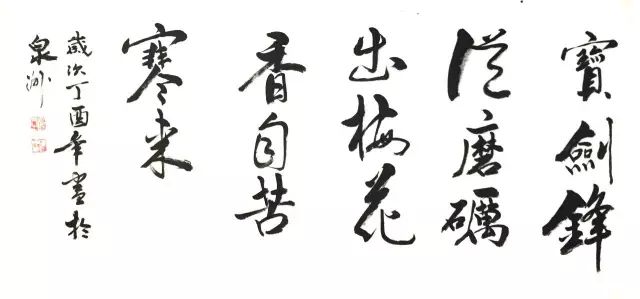 寶劍鋒
從磨礪
出梅花
香自苦
寒來
歲次丁酉年書於
泉州